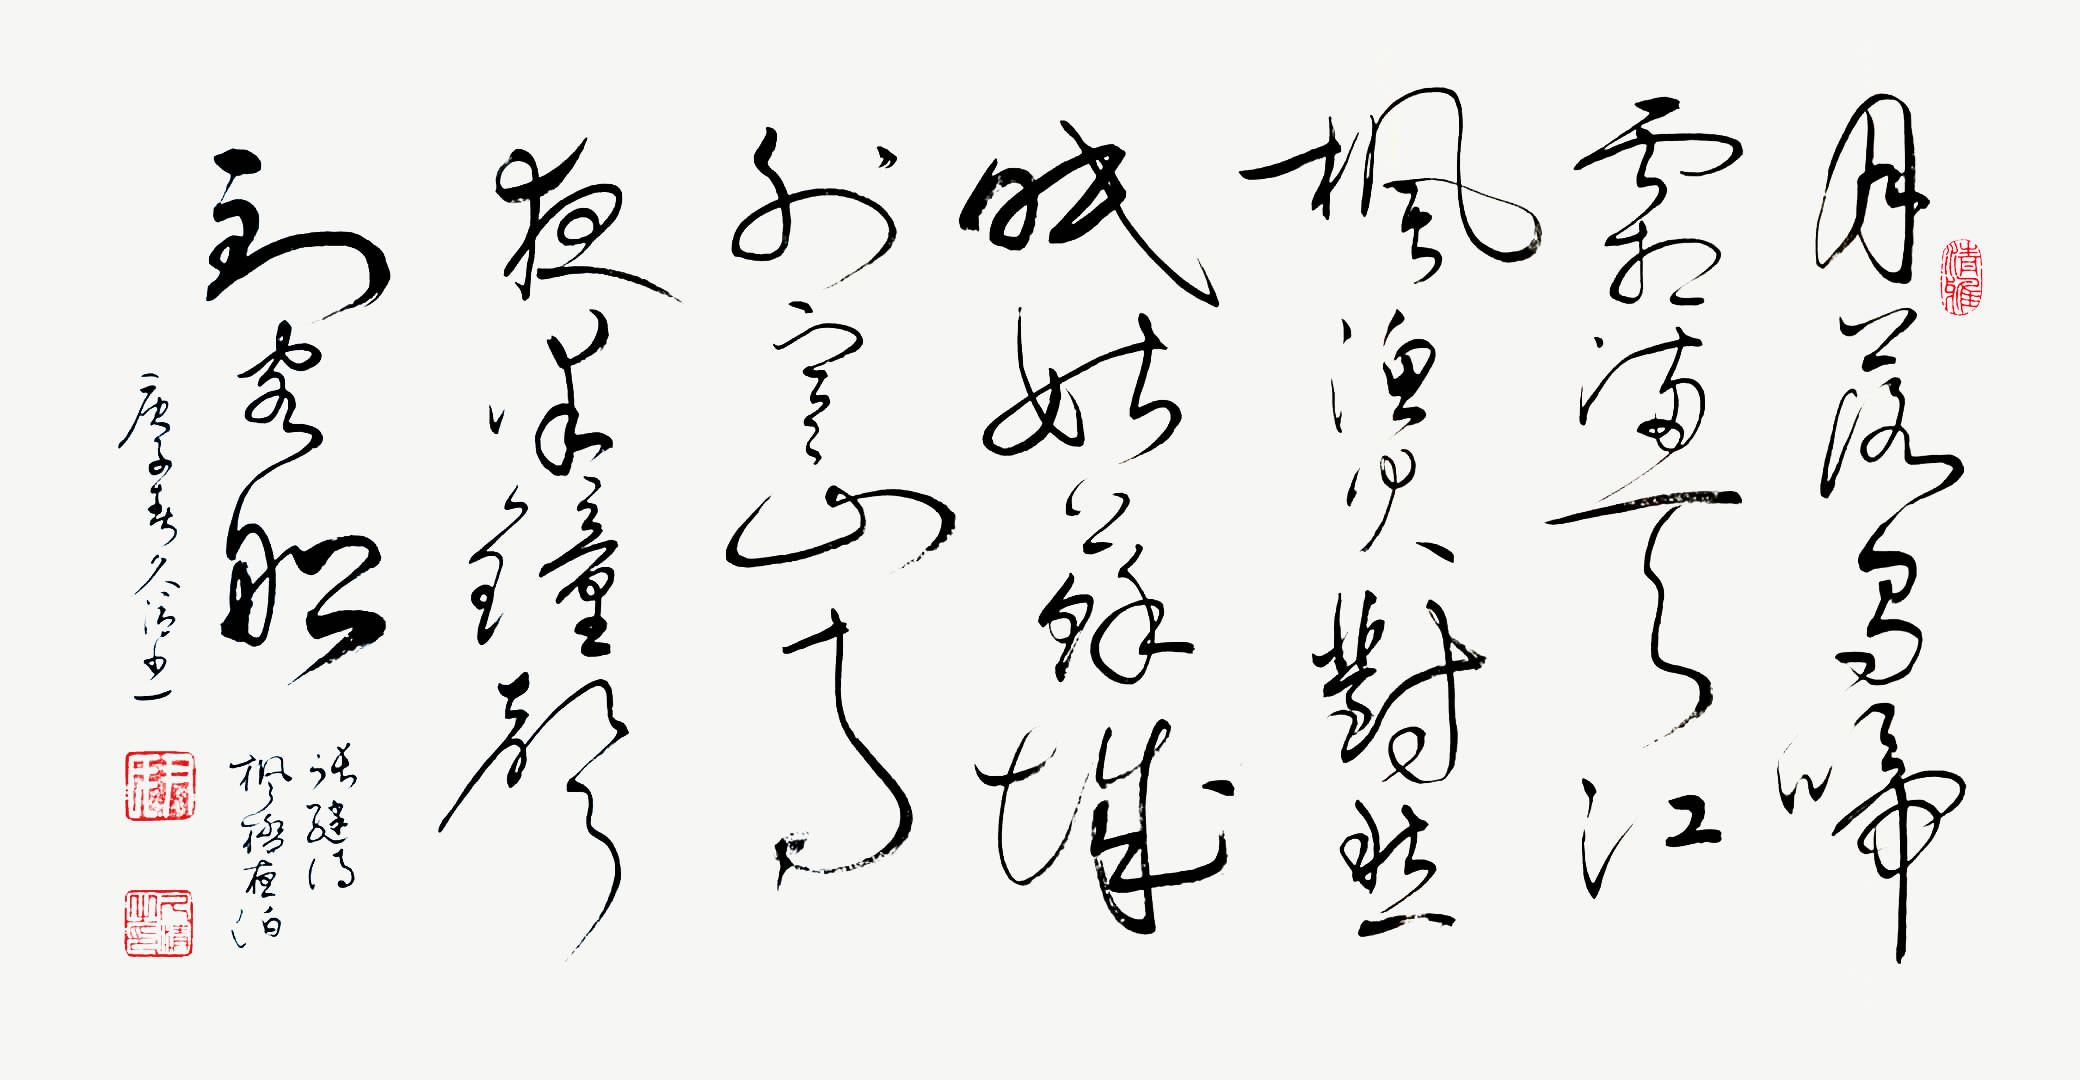 月落烏啼
霜滿天江
楓漁火對愁
眠姑蘇城
外寒山寺
夜半鐘聲
到客船
張繼詩
楓橋夜泊
庚子春久清書
清雅